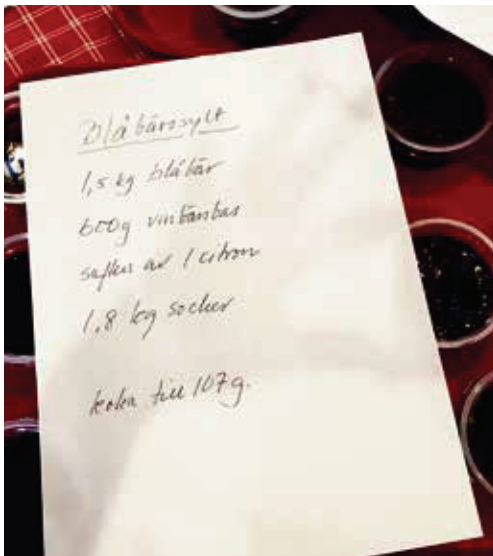 Blåbärssylt
1,5 kg blåbär
600g vinbärsbas
saften av 1 citron
1,8 kg socker
koka till 107g.